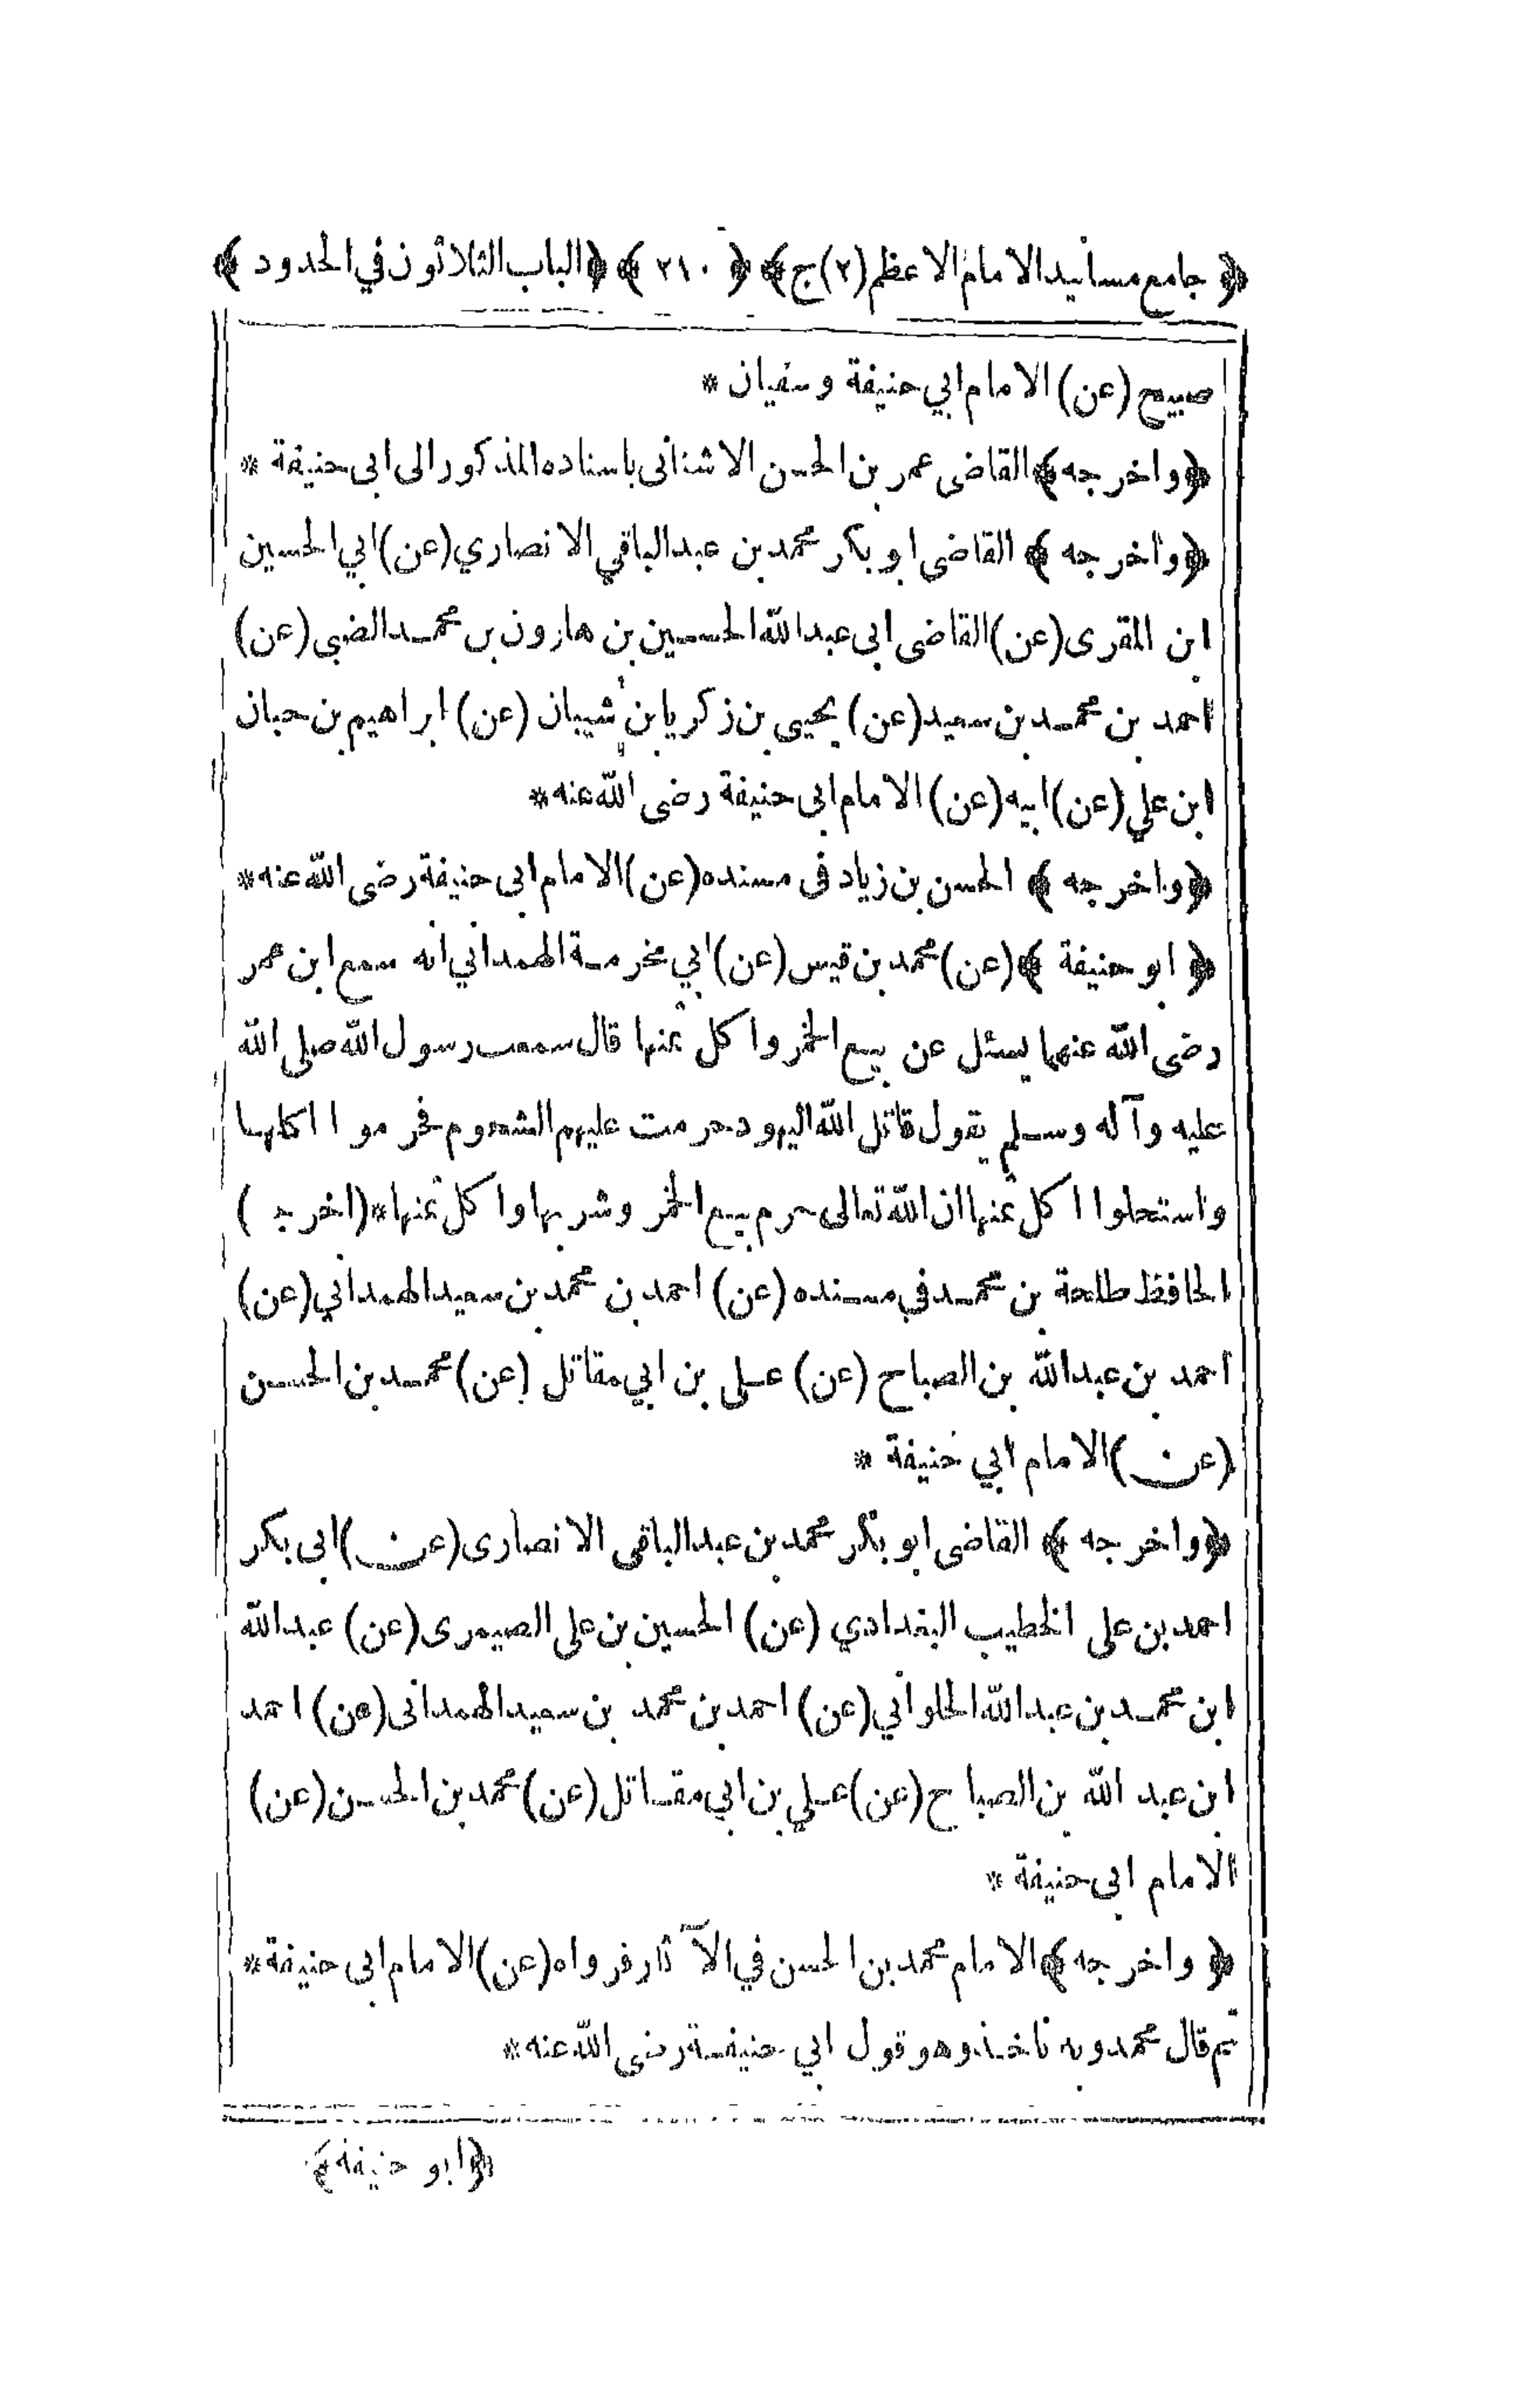 ﴿جامع مسانيد الامام الاعظم (٢) ج﴾ ﴿٢١٠﴾ ﴿الباب الثلاثون في الحدود﴾
صبيح (عن) الامام ابي حنيفة وسفيان *
﴿واخرجه﴾ القاضى عمر بن الحسن الاشنانى باسناده المذكور الى ابى حنيفة *
﴿واخرجه﴾ القاضى ابو بكر محمد بن عبد الباقي الانصاري (عن) ابي الحسين
ابن المقرى (عن) القاضى ابى عبد الله الحسين بن هارون بن محمد الضبي (عن)
احمد بن محمد بن سعيد (عن) يحيى بن زكريا بن شيبان (عن) ابراهيم بن حبان
ابن علي (عن) ابيه (عن) الامام ابى حنيفة رضى الله عنه *
﴿واخرجه﴾ الحسن بن زياد فى مسنده (عن) الامام ابى حنيفة رضى الله عنه *
﴿ابو حنيفة﴾ (عن) محمد بن قيس (عن) ابي مخرمة الهمداني انه سمع ابن عمر
رضى الله عنهما يسئل عن بيع الخمر واكل ثمنها قال سمعت رسول الله صلى الله
عليه وآله وسلم يقول قاتل الله اليهود حرمت عليهم الشحوم فحرموا اكلها
واستحلوا اكل ثمنها ان الله تعالى حرم بيع الخمر وشربها واكل ثمنها * (اخرجه)
الحافظ طلحة بن محمد في مسنده (عن) احمد بن محمد بن سعيد الهمداني (عن)
احمد بن عبد الله بن الصباح (عن) على بن ابي مقاتل (عن) محمد بن الحسن
(عن) الامام ابي حنيفة *
﴿واخرجه﴾ القاضى ابو بكر محمد بن عبد الباقى الانصارى (عن) ابى بكر
احمد بن على الخطيب البغدادي (عن) الحسين بن على الصيمرى (عن) عبد الله
ابن محمد بن عبد الله الحلواني (عن) احمد بن محمد بن سعيد الهمدانى (عن) احمد
ابن عبد الله بن الصباح (عن) علي بن ابي مقاتل (عن) محمد بن الحسن (عن)
الامام ابى حنيفة *
﴿واخرجه﴾ الامام محمد بن الحسن في الآثار فرواه (عن) الامام ابى حنيفة *
ثم قال محمد وبه ناخذ وهو قول ابي حنيفة رضى الله عنه *
﴿ابو حنيفه﴾